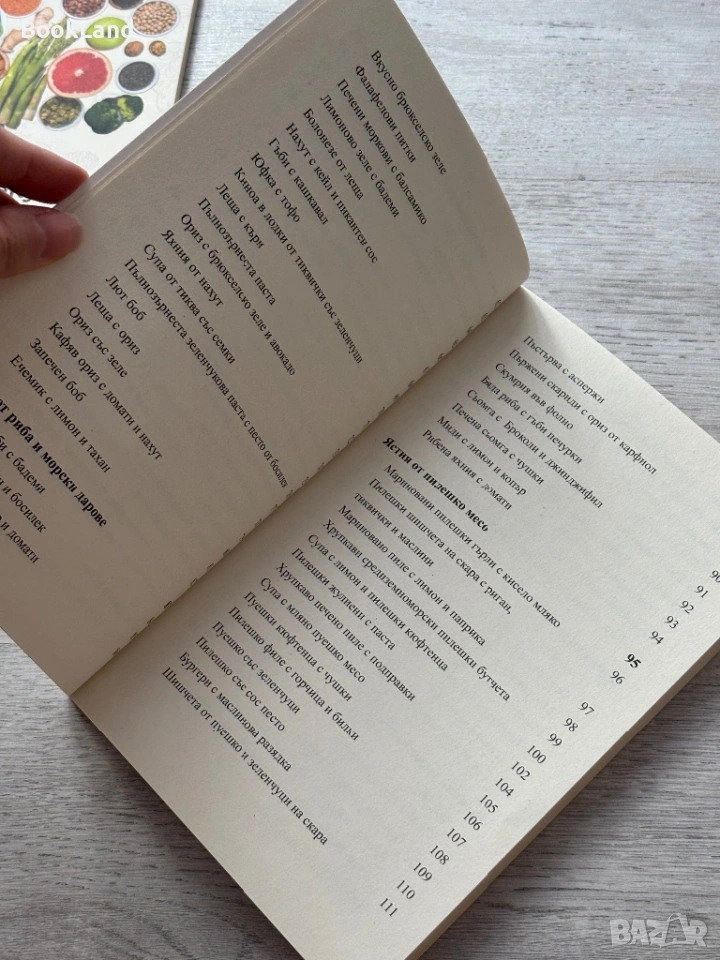 BookLand
Вкусно брюкселско зеле
Фалафелови питки
Печени моркови с балсамико
Лимоново зеле с бадеми
Болонезе от леща
Нахут с кейл и пикантен сос
Гъби с кашкавал
Юфка с тофо
Киноа в лодки от тиквички със зеленчуци
Леща с къри
Пълнозърнеста паста
Ориз с брюкселско зеле и авокадо
Яхния от нахут
Супа от тиква със семки
Пълнозърнеста зеленчукова паста с песто от босилек
Лют боб
Леща с ориз
Ориз със зеле
Кафяв ориз с домати и нахут
Запечен боб
Ечемик с лимон и тахан
от риба и морски дарове
би с бадеми
и и босилек
и домати
Пъстърва с аспержи
Пържени скариди с ориз от карфиол
Скумрия във фолио
Бяла риба с гъби печурки
Сьомга с Броколи и джинджифил
Печена сьомга с чушки
Миди с лимон и копър
Рибена яхния с домати
Ястия от пилешко месо
Мариновани пилешки гърди с кисело мляко
Пилешки шишчета на скара с риган,
тиквички и маслини
Мариновано пиле с лимон и паприка
Хрупкави средиземноморски пилешки бутчета
Супа с лимон и пилешки кюфтенца
Пилешки жулиени с паста
Хрупкаво печено пиле с подправки
Супа с мляно пуешко месо
Пуешки кюфтенца с чушки
Пилешко филе с горчица и билки
Пуешко със зеленчуци
Пилешко със сос песто
Бургери с маслинова разядка
Шишчета от пуешко и зеленчуци на скара
90
91
92
93
94
95
96
97
98
99
100
102
104
105
106
107
108
109
110
111
BAZAR